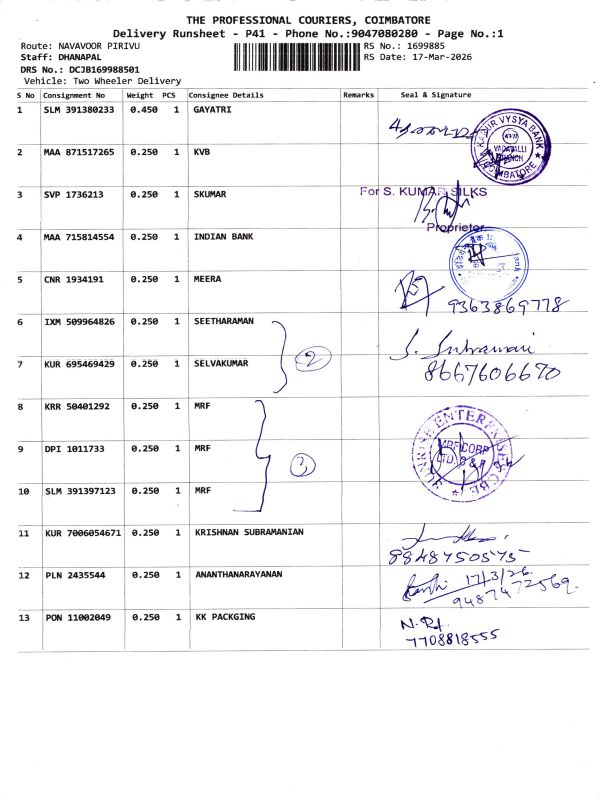 THE PROFESSIONAL COURIERS, COIMBATORE
Delivery Runsheet - P41 - Phone No.:9047080280 - Page No.:1
Route: NAVAVOOR PIRIVU RS No.: 1699885
Staff: DHANAPAL RS Date: 17-Mar-2026
DRS No.: DCJB169988501
Vehicle: Two Wheeler Delivery
S No Consignment No Weight PCS Consignee Details Remarks Seal & Signature
1 SLM 391380233 0.450 1 GAYATRI
KARUR VYSYA BANK
VADAVALLI
BRANCH
COIMBATORE
2 MAA 871517265 0.250 1 KVB
3 SVP 1736213 0.250 1 SKUMAR
For S. KUMAR SILKS
Proprietor
4 MAA 715814554 0.250 1 INDIAN BANK
5 CNR 1934191 0.250 1 MEERA
9363869778
6 IXM 509964826 0.250 1 SEETHARAMAN
2
7 KUR 695469429 0.250 1 SELVAKUMAR
8667606670
8 KRR 50401292 0.250 1 MRF
SUNRISE ENTERPRISES CBE
9 DPI 1011733 0.250 1 MRF
3
10 SLM 391397123 0.250 1 MRF
11 KUR 7006054671 0.250 1 KRISHNAN SUBRAMANIAN
8848750575
12 PLN 2435544 0.250 1 ANANTHANARAYANAN
17/3/26
9487472569
13 PON 11002049 0.250 1 KK PACKGING
7708818555